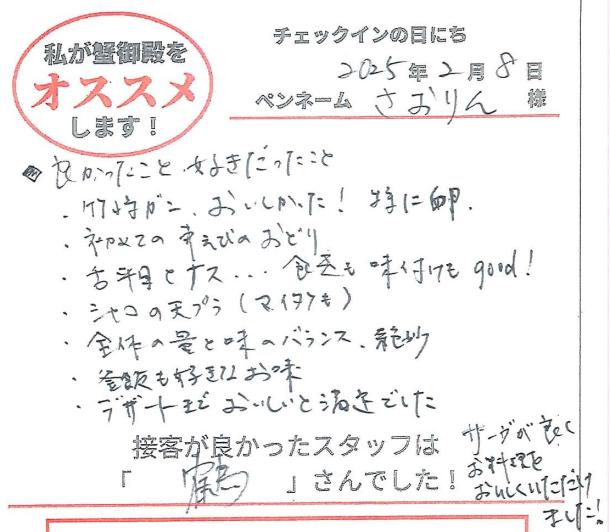 私が蟹御殿を
オススメ
します!
チェックインの日にち
2025年2月8日
ペンネーム さおりん 様
良かったこと、好きだったこと
・竹崎ガニ、おいしかった!特に卵。
・初めての車えびのおどり
・舌平目とナス... 食感も味付けもgood!
・シャコの天プラ(マイタケも)
・全体の量と味のバランス、絶妙
・釜飯も好きなお味
・デザートまでおいしいと満足でした
接客が良かったスタッフは
「 鶴 」さんでした!
サーヴが良く
お料理を
おいしくいただけ
ました!